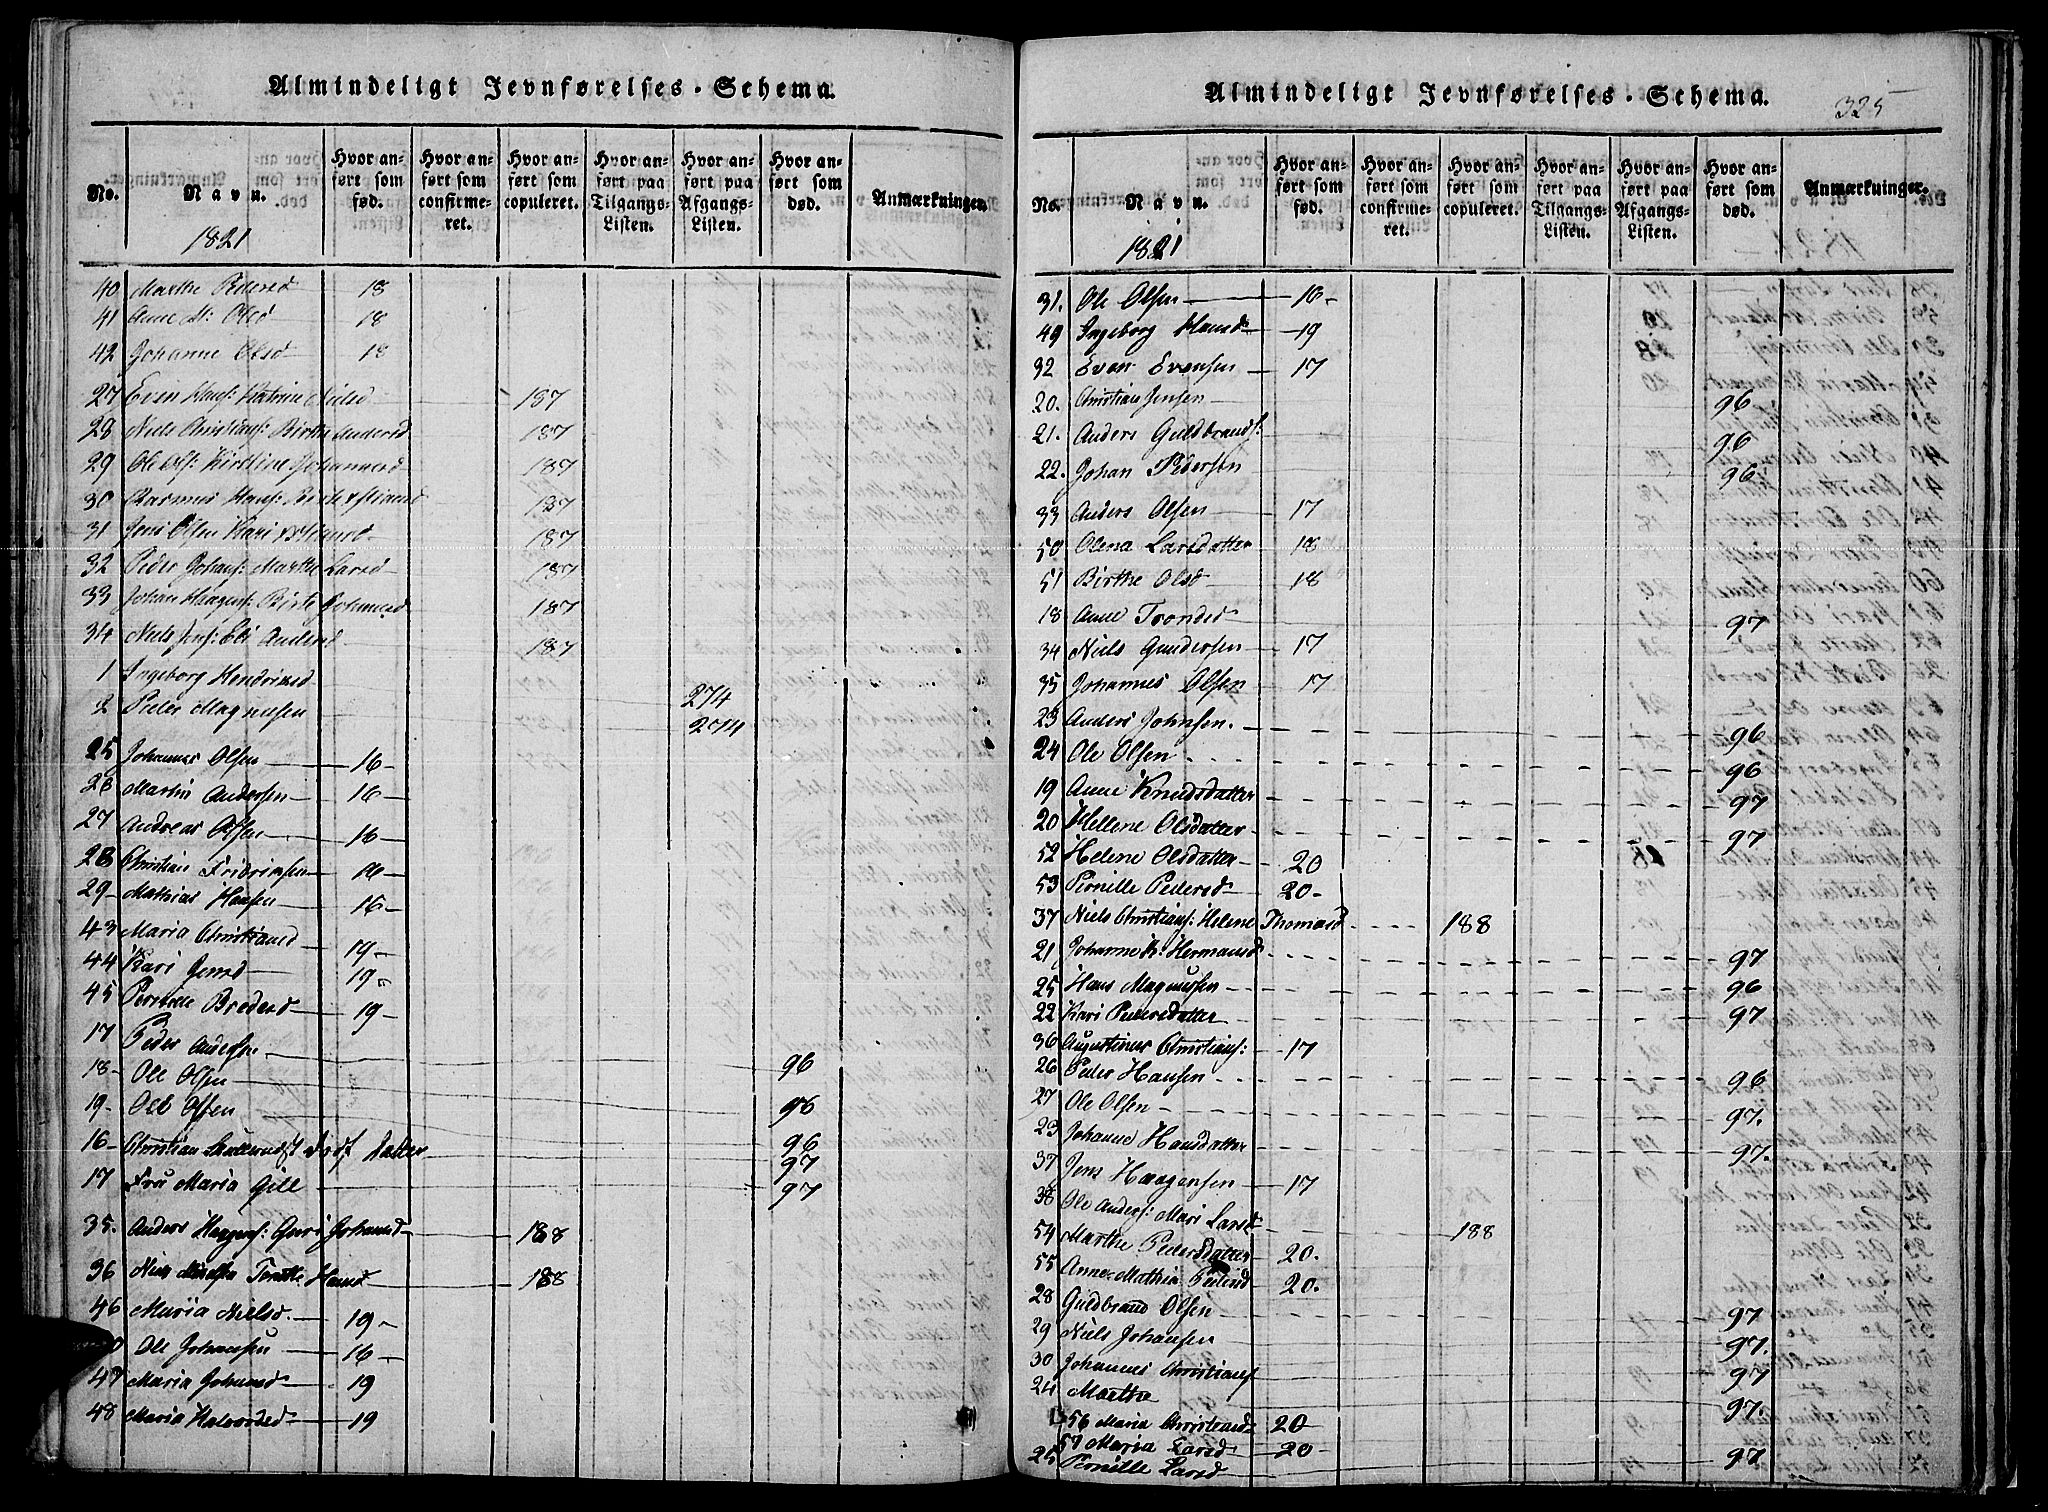 Almindeligt Jevnførelses-Schema.
No.
Navn.
1821
Hvor anført som fød.
Hvor anført som confirmeret.
Hvor anført som copuleret.
Hvor anført paa Tilgangs-Listen.
Hvor anført paa Afgangs-Listen.
Hvor anført som død.
Anmærkninger.
40 Marthe Pedersd 18
41 Anne M: Olsd 18
42 Johanne Olsd 18
27 Even Hans: Katrine Nielsd 187
28 Niels Christians: Birthe Andersd 187
29 Ole Ols: Kirstine Johannesd 187
30 Rasmus Hans: 187
31 Jens Olsen Kari 187
32 Peder Johans: Marthe Larsd 187
33 Johan Haagens: Birte Johannesd 187
34 Niels Jens: Eli Andersd 187
1 Ingeborg Hendriksd 274
2 Peder Magnusen 274
25 Johannes Olsen 16
26 Martin Andersen 16
27 Andreas Olsen 16
28 Christian Fridriksen 16
29 Mathias Hansen 16
43 Maria Christiansd 19
44 Kari Jensd 19
45 Pernille Bredesd 19
17 Peder Andersen 96
18 Ole Olsen 96
19 Ole Olsen 96
16 Christian Datter 97
17 Fru Maria Gill 97
35. Anders Haagens: Guri Johansd 188
36 Niels Nielsen Torette Hansd 188
46 Maria Nielsd. 19
Ole Johansen 16
47 Maria Johansd 19
48 Maria Halvorsd 19
Almindeligt Jevnførelses-Schema.
325
No.
Navn.
1821
Hvor anført som fød.
Hvor anført som confirmeret.
Hvor anført som copuleret.
Hvor anført paa Tilgangs-Listen.
Hvor anført paa Afgangs-Listen.
Hvor anført som død.
Anmærkninger.
31. Ole Olsen 16
49 Ingeborg Hansd 19
32 Even Evensen 17
20. Christian Jensen 96
21. Anders Guldbrands: 96
22. Johan Pedersen 96
33 Anders Olsen 17
50 Olena Larsdatter 18
51 Birthe Olsd 18
18 Anne Trondsd 97
34 Niels Gundersen 17
35 Johannes Olsen 17
23 Anders Johnsen. 96
24 Ole Olsen 96
19 Anne Knudsdatter 97
20 Hellene Olsdatter 97
52 Helene Olsdatter 20
53 Pernille Pedersd 20
37 Niels Christians: Helene Thomasd 188
21 Johanne K: Hermansd 97
25 Hans Magnussen 96
22 Kari Pedersdatter 97
36 Augustinus Christians: 17
26 Peder Hansen 96
27 Ole Olsen 97.
23 Johanne Hansdatter 97.
37 Jens Haagensen 17
38 Ole Anders: Mari Larsd 188
54 Marthe Pedersdatter 20.
55 Anne Mathia Pedersd 20.
28 Guldbrand Olsen 97
29 Niels Johansen 97.
30 Johannes Christians: 97
24 Marthe 97.
56 Maria Christiansd 20
57 Maria Larsd 20
25 Pernille Larsd 97